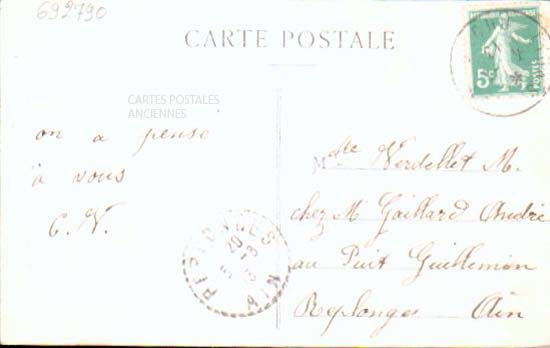 692790
CARTE POSTALE
5c
POSTES
CARTES POSTALES
ANCIENNES
on a pensé
à vous
C. V.
Mlle Verdellet M.
chez M Gaillard André
au Puit Guillemin
Replonges Ain
REPLONGES AIN